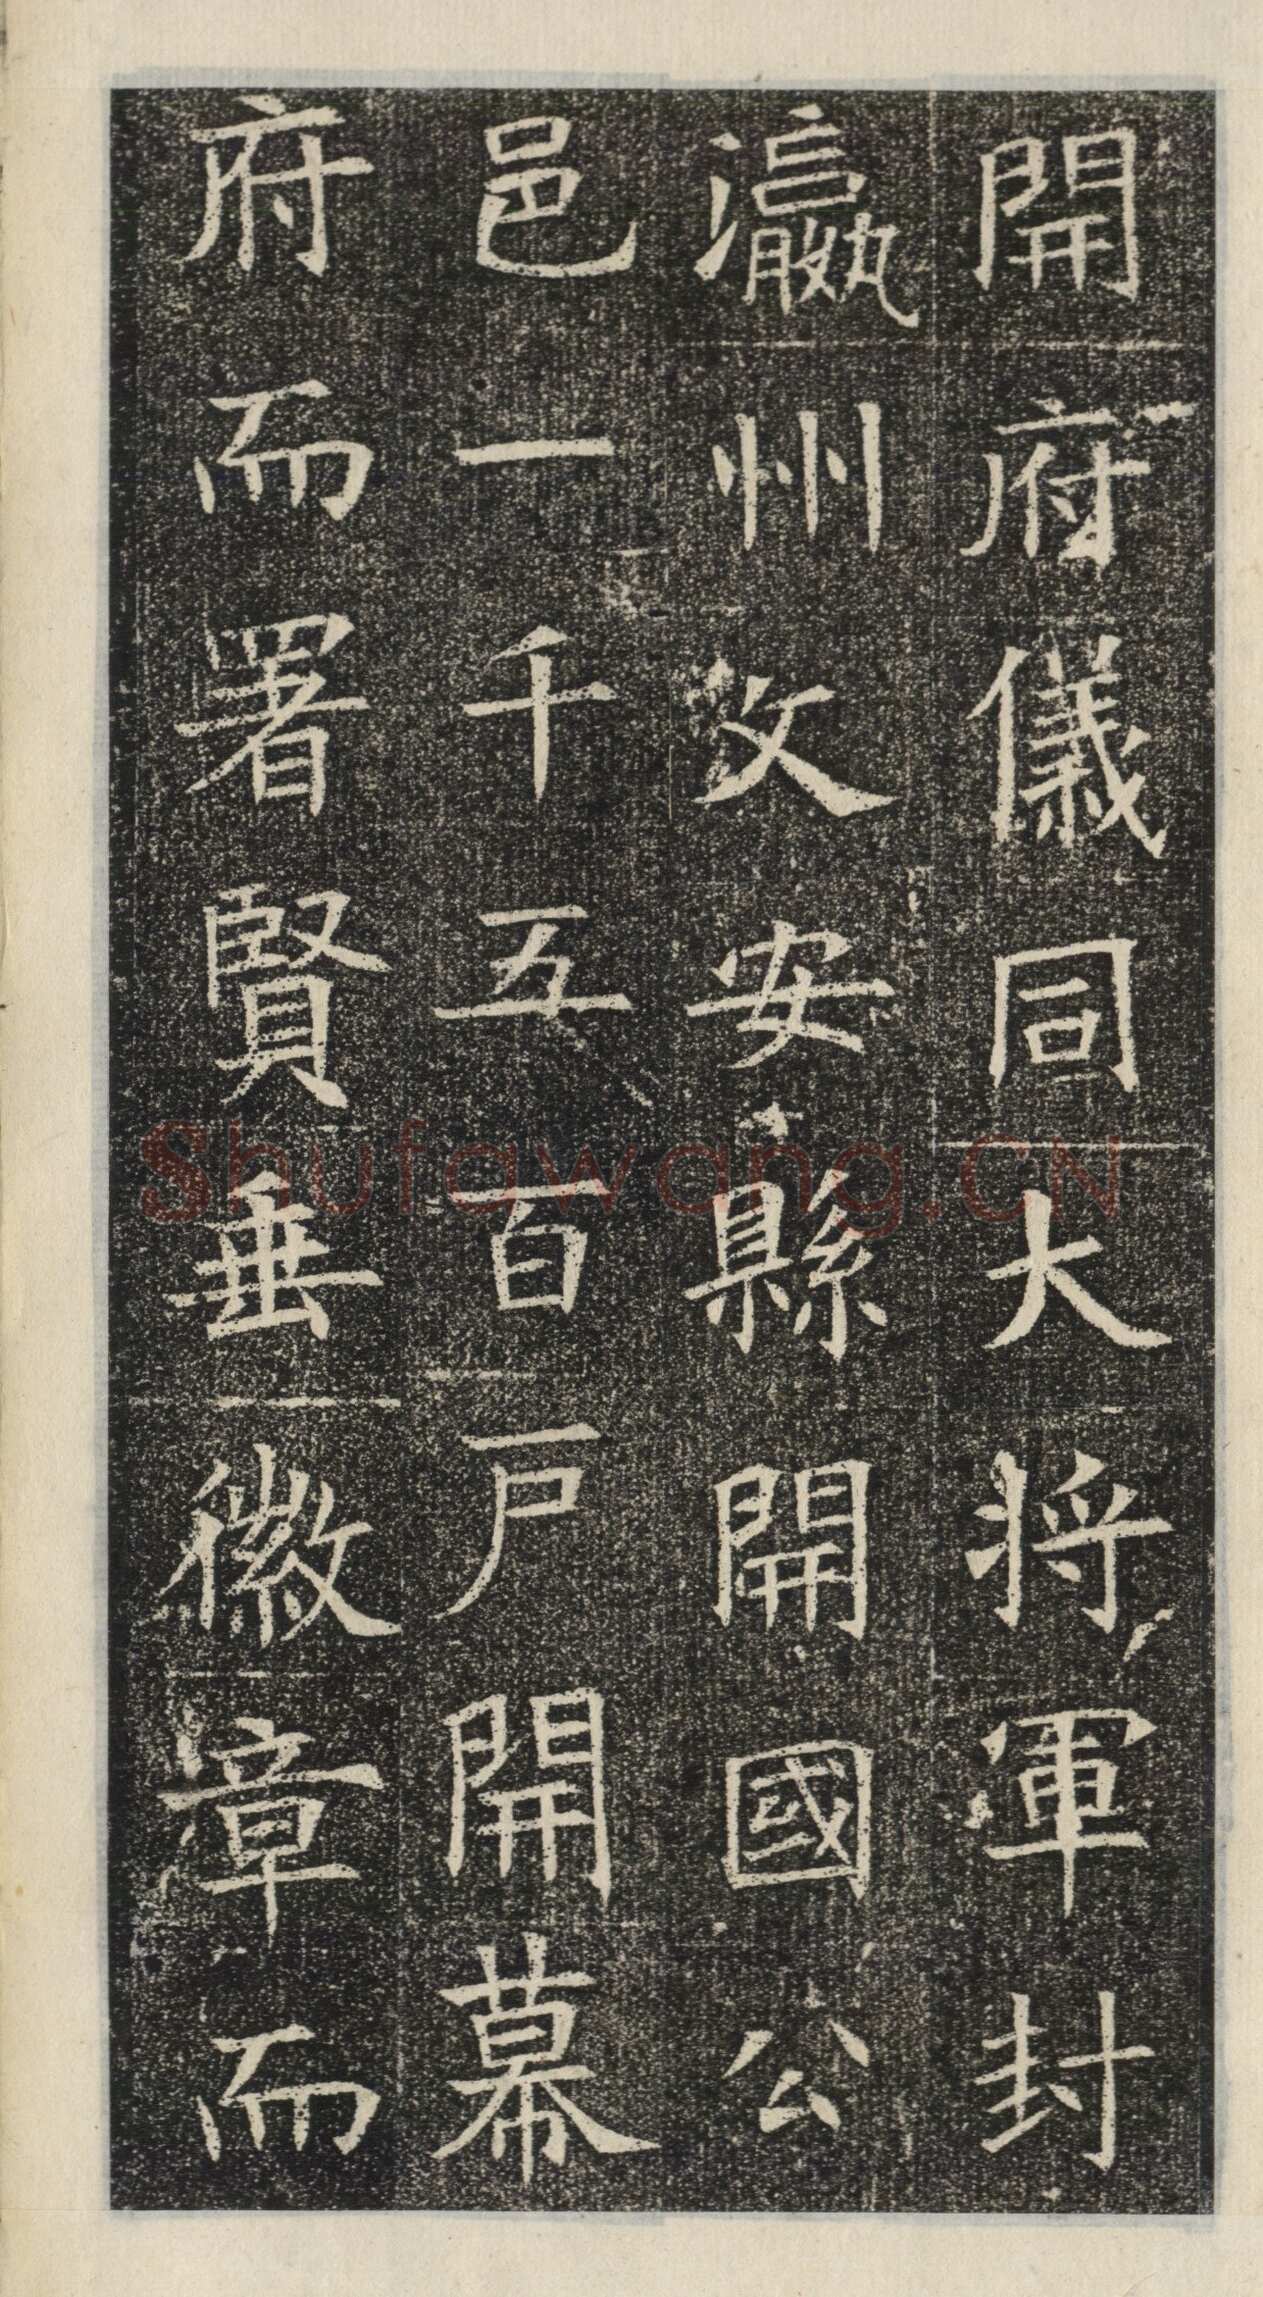 開府儀同大將軍封
瀛州文安縣開國公
邑一千五百戶開幕
府而署賢垂徽章而
Shufawang.CN